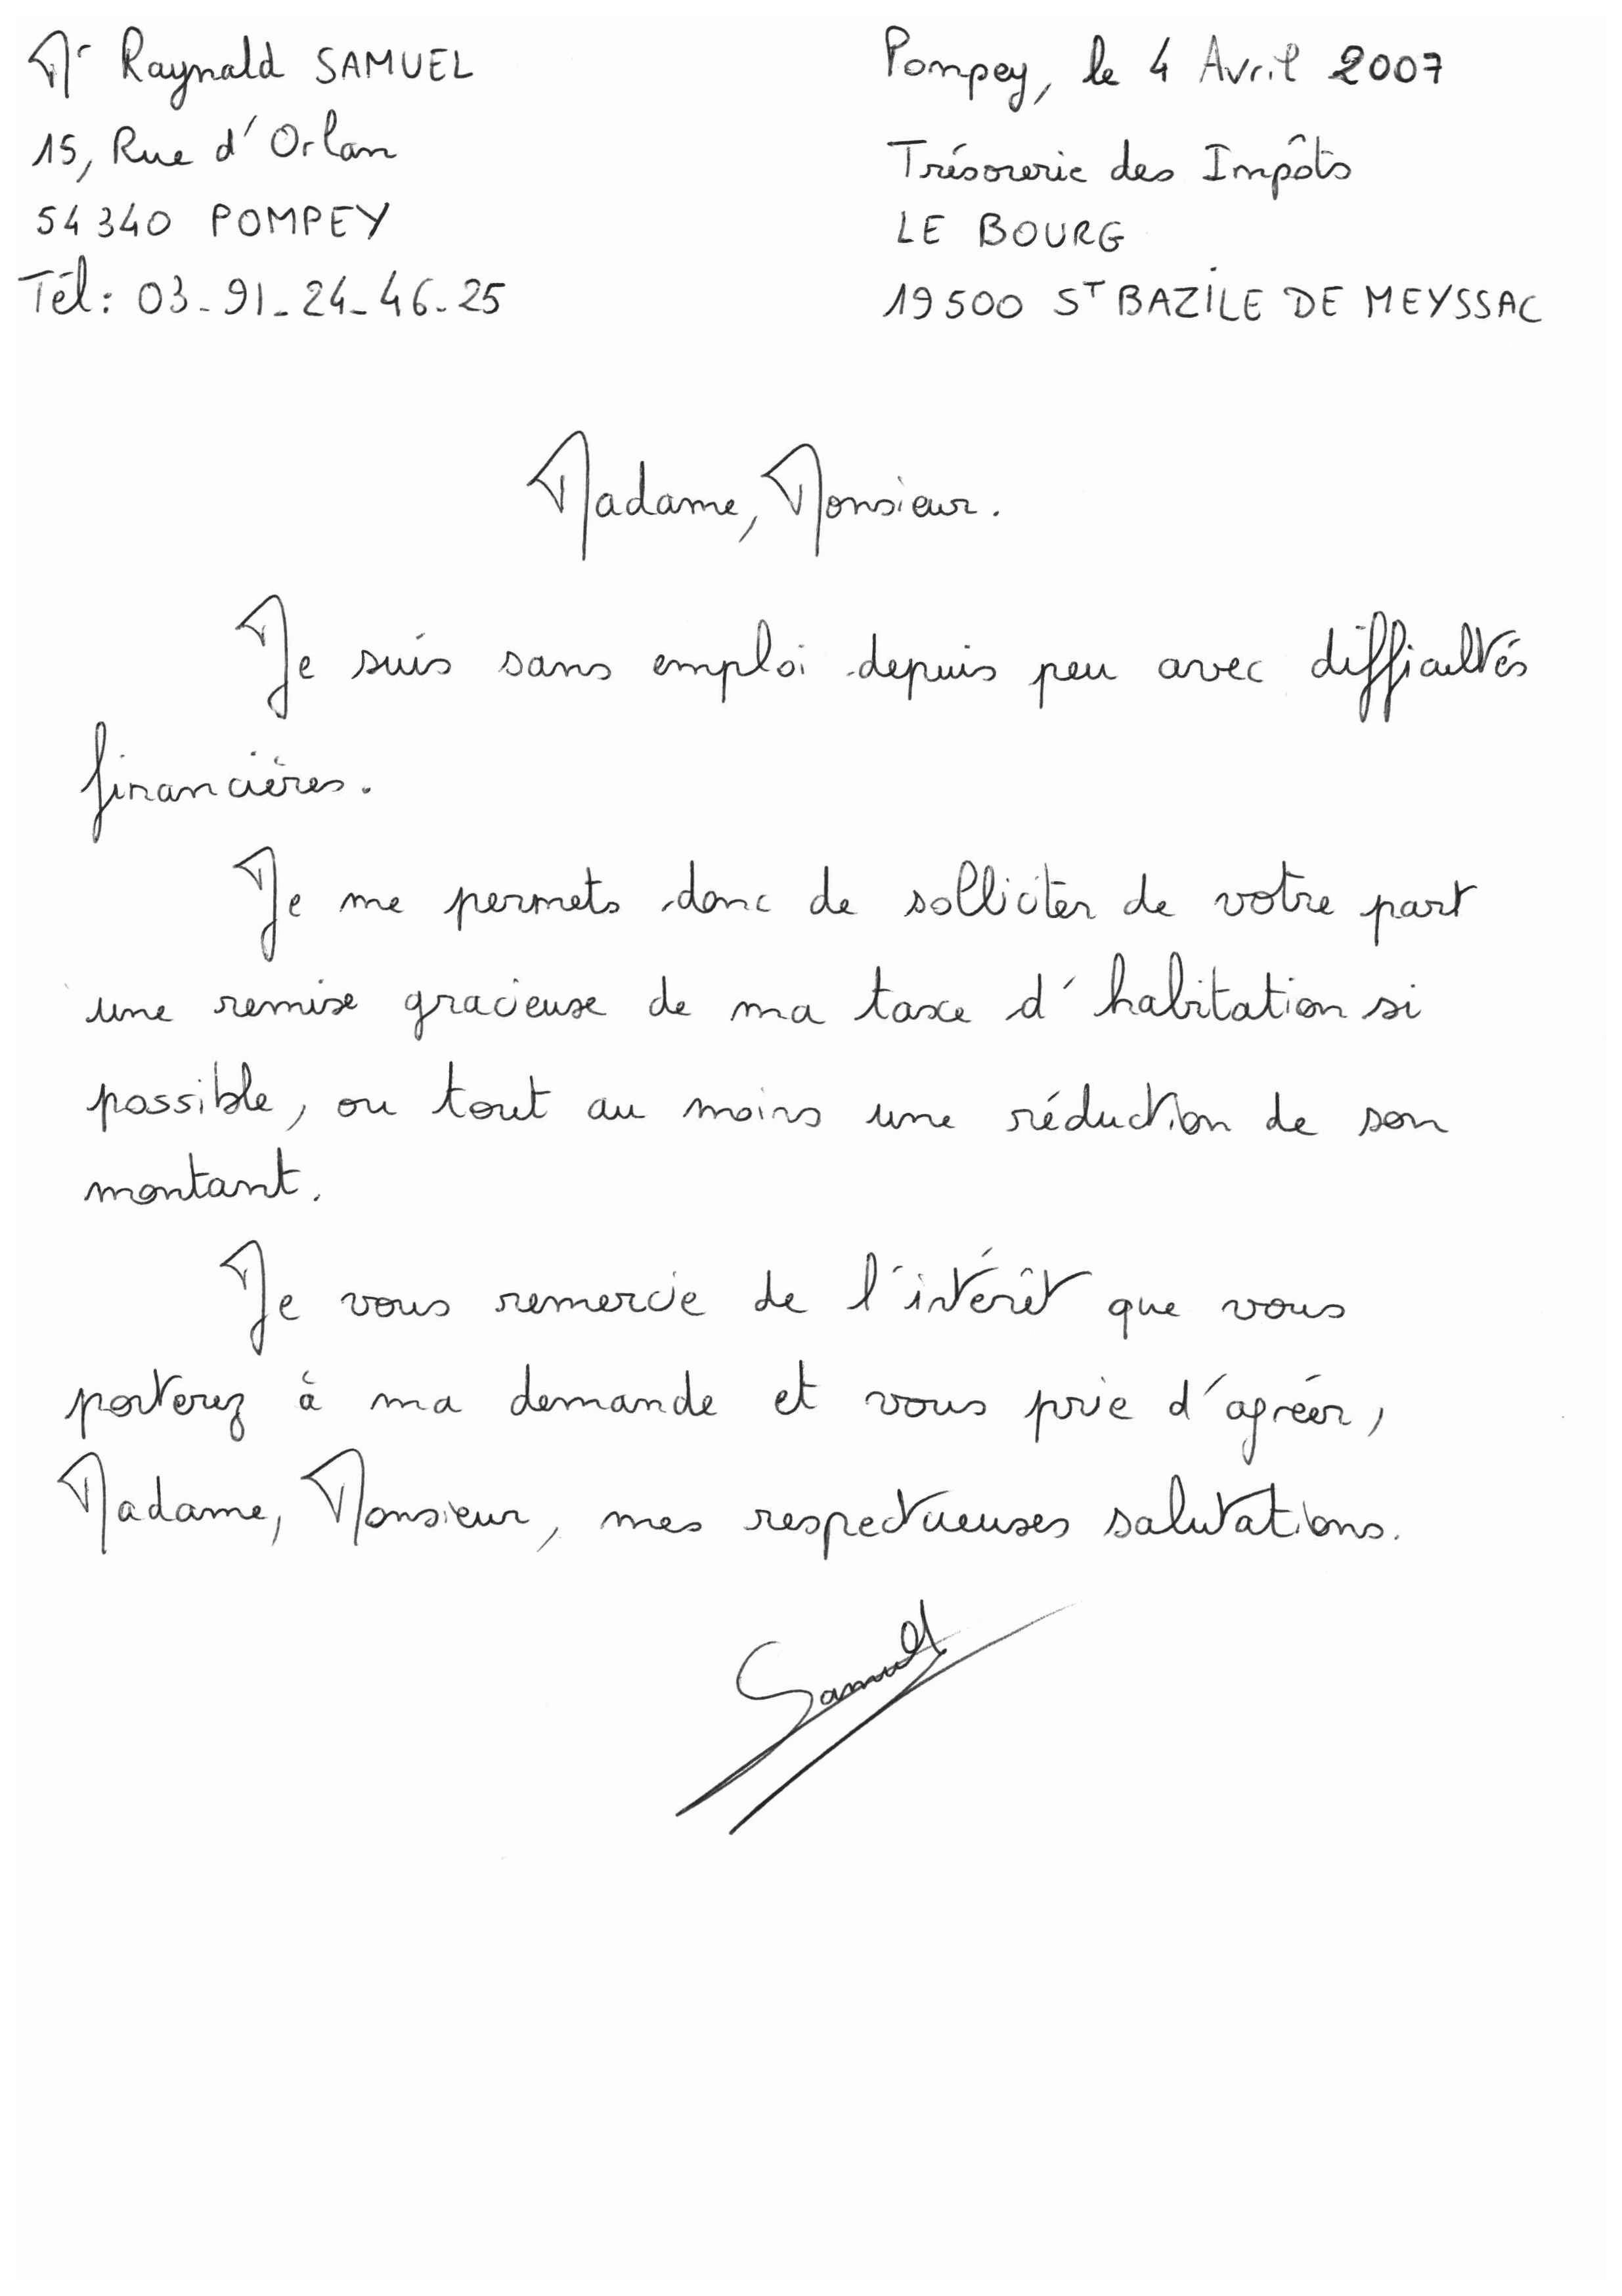 Mr Raynald SAMUEL
15, Rue d'Orlan
54340 POMPEY
Tél: 03-91-24-46-25
Pompey, le 4 Avril 2007
Trésorerie des Impôts
LE BOURG
19500 ST BAZILE DE MEYSSAC
Madame, Monsieur.
Je suis sans emploi depuis peu avec difficultés
financières.
Je me permets donc de solliciter de votre part
une remise gracieuse de ma taxe d'habitation si
possible, ou tout au moins une réduction de son
montant.
Je vous remercie de l'intérêt que vous
porterez à ma demande et vous prie d'agréer,
Madame, Monsieur, mes respectueuses salutations.
Samuel